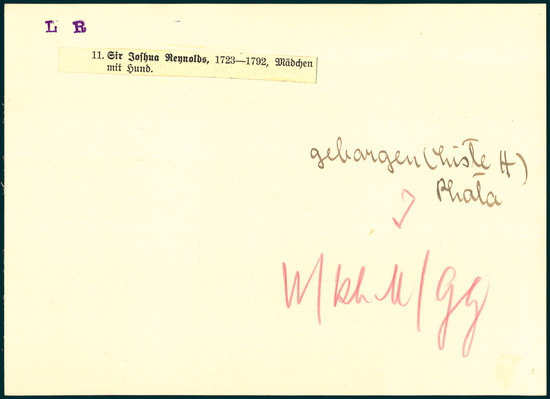 L R
11. Sir Joshua Reynolds, 1723—1792, Mädchen
mit Hund.
geborgen (Liste H)
Photo
W/khM/GG